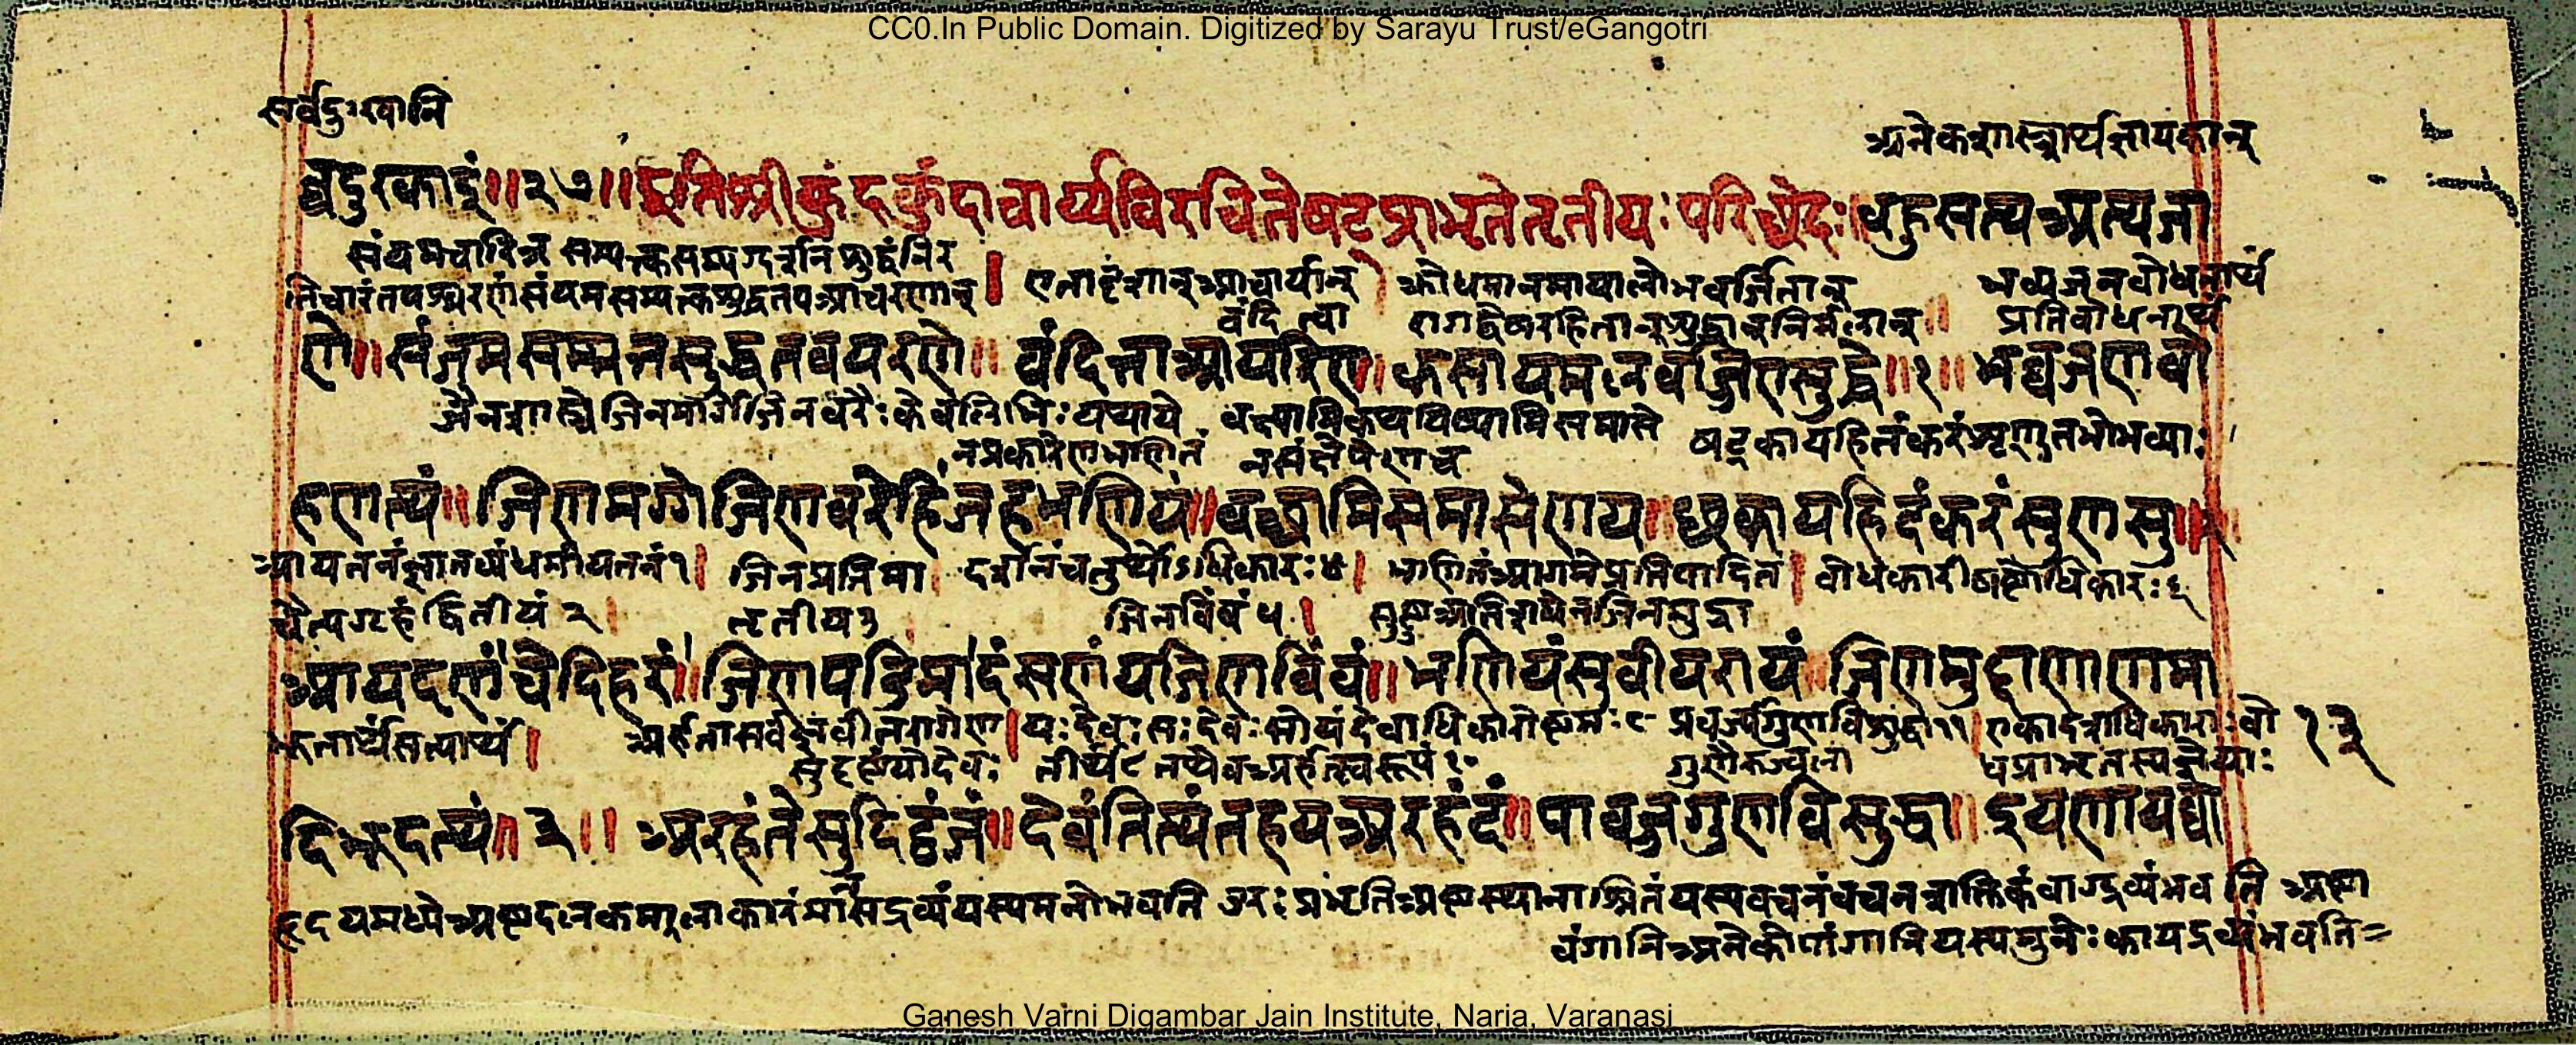 CC0.In Public Domain. Digitized by Sarayu Trust/eGangotri
सर्वदुःखानि
अनेकशास्त्रार्थज्ञायकान्
व्वदुरकाइं॥२७॥इतिश्रीकुंदकुंदाचार्य्यविरचितेषटप्राभृतेतृतीयः परिछेदः॥बहुसत्यअत्यजा
संयमचारित्र सम्यक्त्कसम्यग्दर्शनं शुद्धंनिर
तिचारंतपश्चरणंसंयमसम्यक्त्कशुद्धतपआचरणान् | एतादृशान्आचार्यान् क्रोधमानमायालोभवर्जितान् भव्यजनबोधनार्थं
वंदित्वा रागद्वेषरहितान्शुद्धान्निर्मलान्॥ प्रतिबोधनार्थं
णे॥संजमसम्मत्तसुद्धतवयरणे॥ वंदित्ताआयरिए॥कसायमलवज्जिएसुद्धे॥१॥भव्वजणबो
जैनशास्त्रे जिनमार्गे जिनवरैः केवलिभिः यथाये वक्ष्यामिकथयिष्यामिसमासे षट्कायहितंकरंशृणुतभोभव्याः
नप्रकारेणभणितं नसंक्षेपेणच
हणत्यं॥जिणमग्गेजिणवरेहिंजहभणियं॥वच्छामिसमासेणय॥छकायहिदंकरंसुणसु॥२
आयतनंज्ञातव्यंधर्मायतनं१| जिनप्रतिमा दर्शनंचतुर्थोऽधिकारः४| भणितंआगमेप्रतिपादितं| बोधकारीषष्टोधिकारः६
चैत्यगृहं द्वितीयं २| तृतीय३ जिनबिंबं ५| सुष्टुअतिशयेनजिनमुद्रा
आयदणंचेदिहरं॥जिणपडिमादंसणंचजिणबिंबं॥भणियंसुवीयरायं॥जिणमुद्दाणाणमा
अर्हतासर्वज्ञेनवीतरागेण|यःदेवःसःदेवःसोयंदेवाधिकारोष्टमः८ प्रव्रज्यागुणविशुद्धा११|एकादशाधिकाराःबो १३
सुदृष्टंयोदेवः तीर्थं९ तथैवअर्हत्स्वरूपं१० धप्राभृतस्यज्ञेयाः
दिच्छदत्थं॥३॥ अरहंतेसुदिट्ठंजं॥देवंतित्थंतहयअरहंतं॥पावज्जगुणविसुद्धा॥इयणायव्वो
हृदयमध्येअष्टदलकमलाकारंमांसद्रव्यंयस्यमनोभवति उरःप्रभृतिअष्टस्थानाश्रितंयस्यवचनंवचनशक्तिकंवाग्द्रव्यंभवति अष्टा
वंगानिअनेकोपांगानियस्यमुनेःकायद्रव्यंभवति=
Ganesh Varni Digambar Jain Institute, Naria, Varanasi